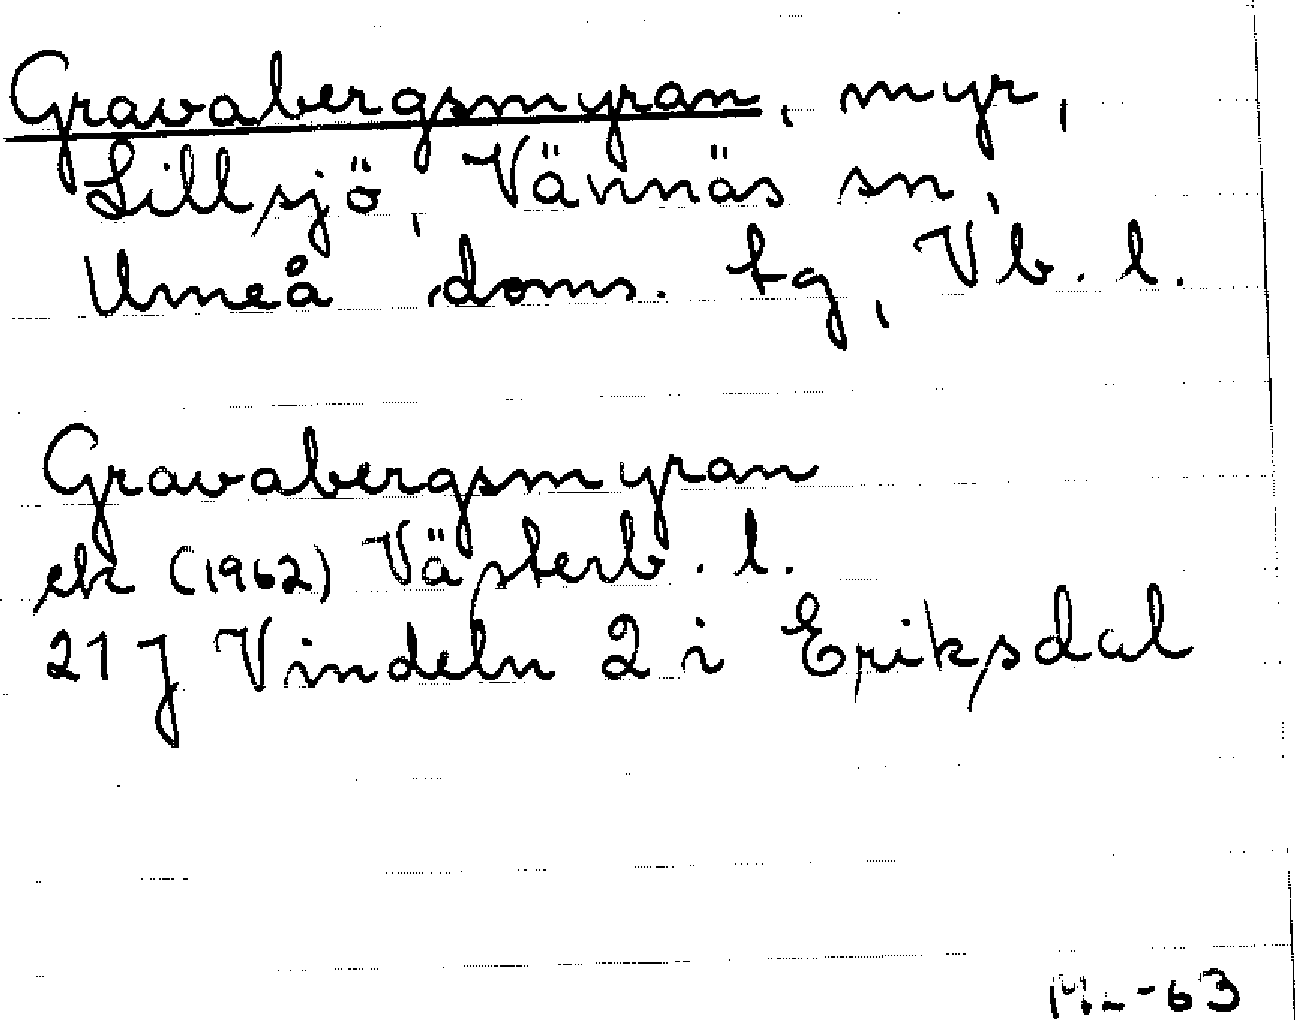 Gravabergsmyran, myr,
Lillsjö, Vännäs sn,
Umeå doms. tg, Vb. l.
Gravabergsmyran
ek (1962) Västerb. l.
21 J Vindeln 2 i Eriksdal